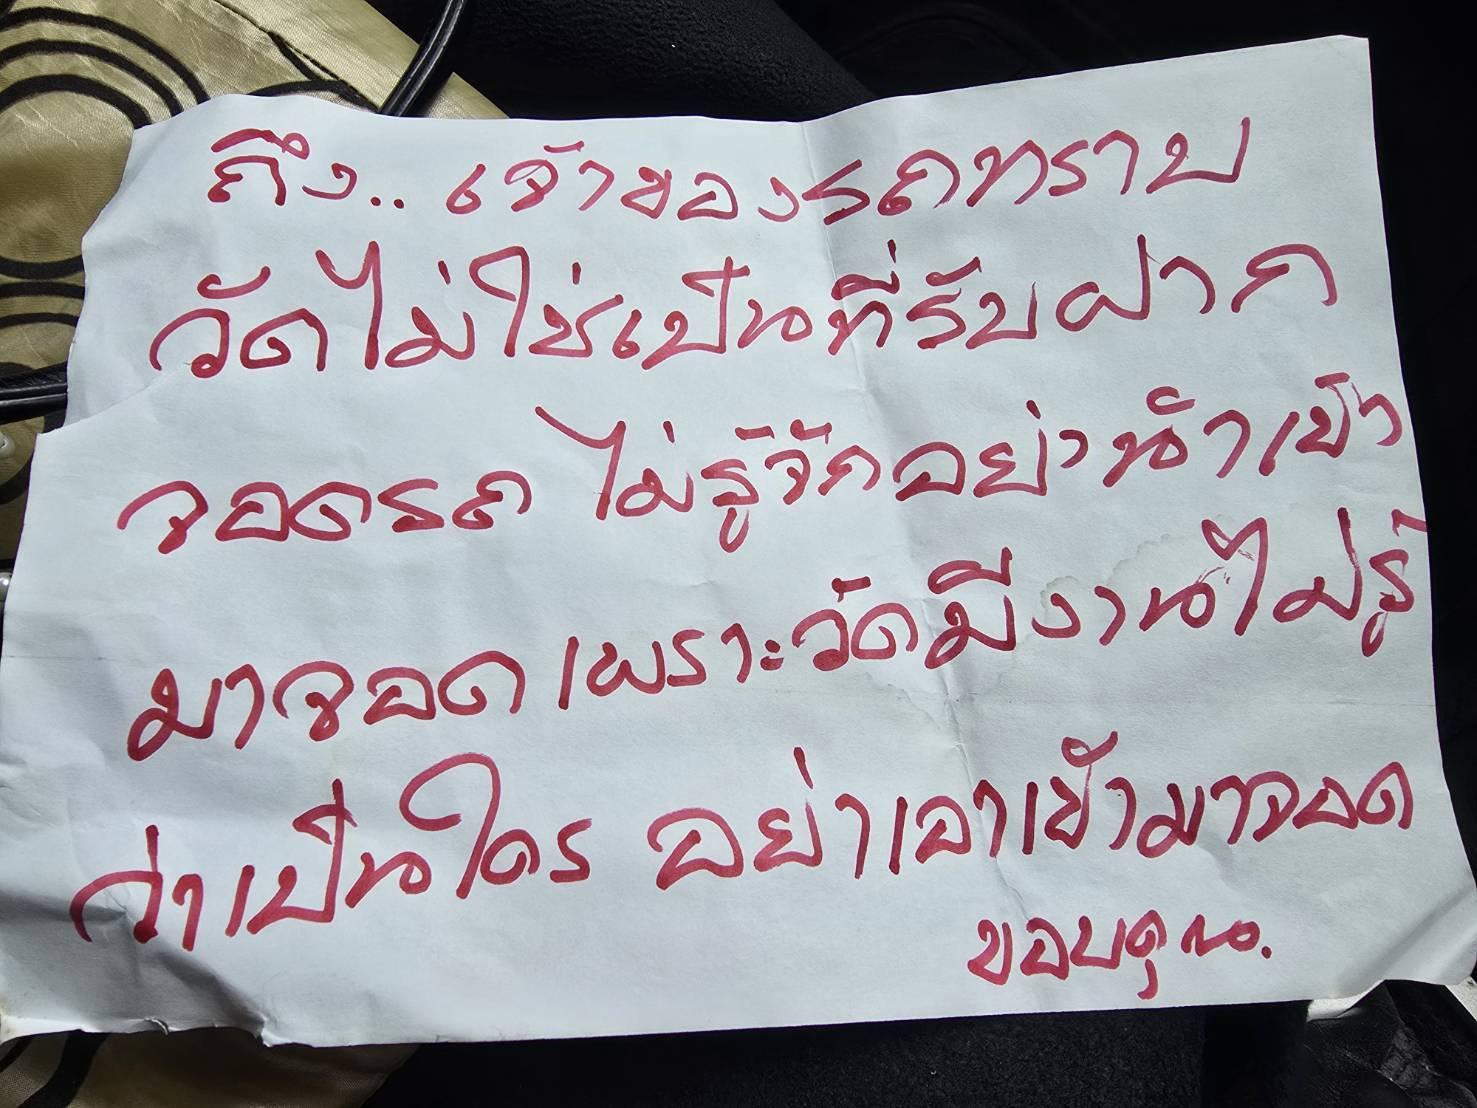 ถึง.. เจ้าของรถทราบ
วัดไม่ใช่เป็นที่รับฝาก
จอดรถ ไม่รู้จักอย่านำเข้า
มาจอด เพราะวัดมีงานไม่รู้
ว่าเป็นใคร อย่าเอาเข้ามาจอด
ขอบคุณ.